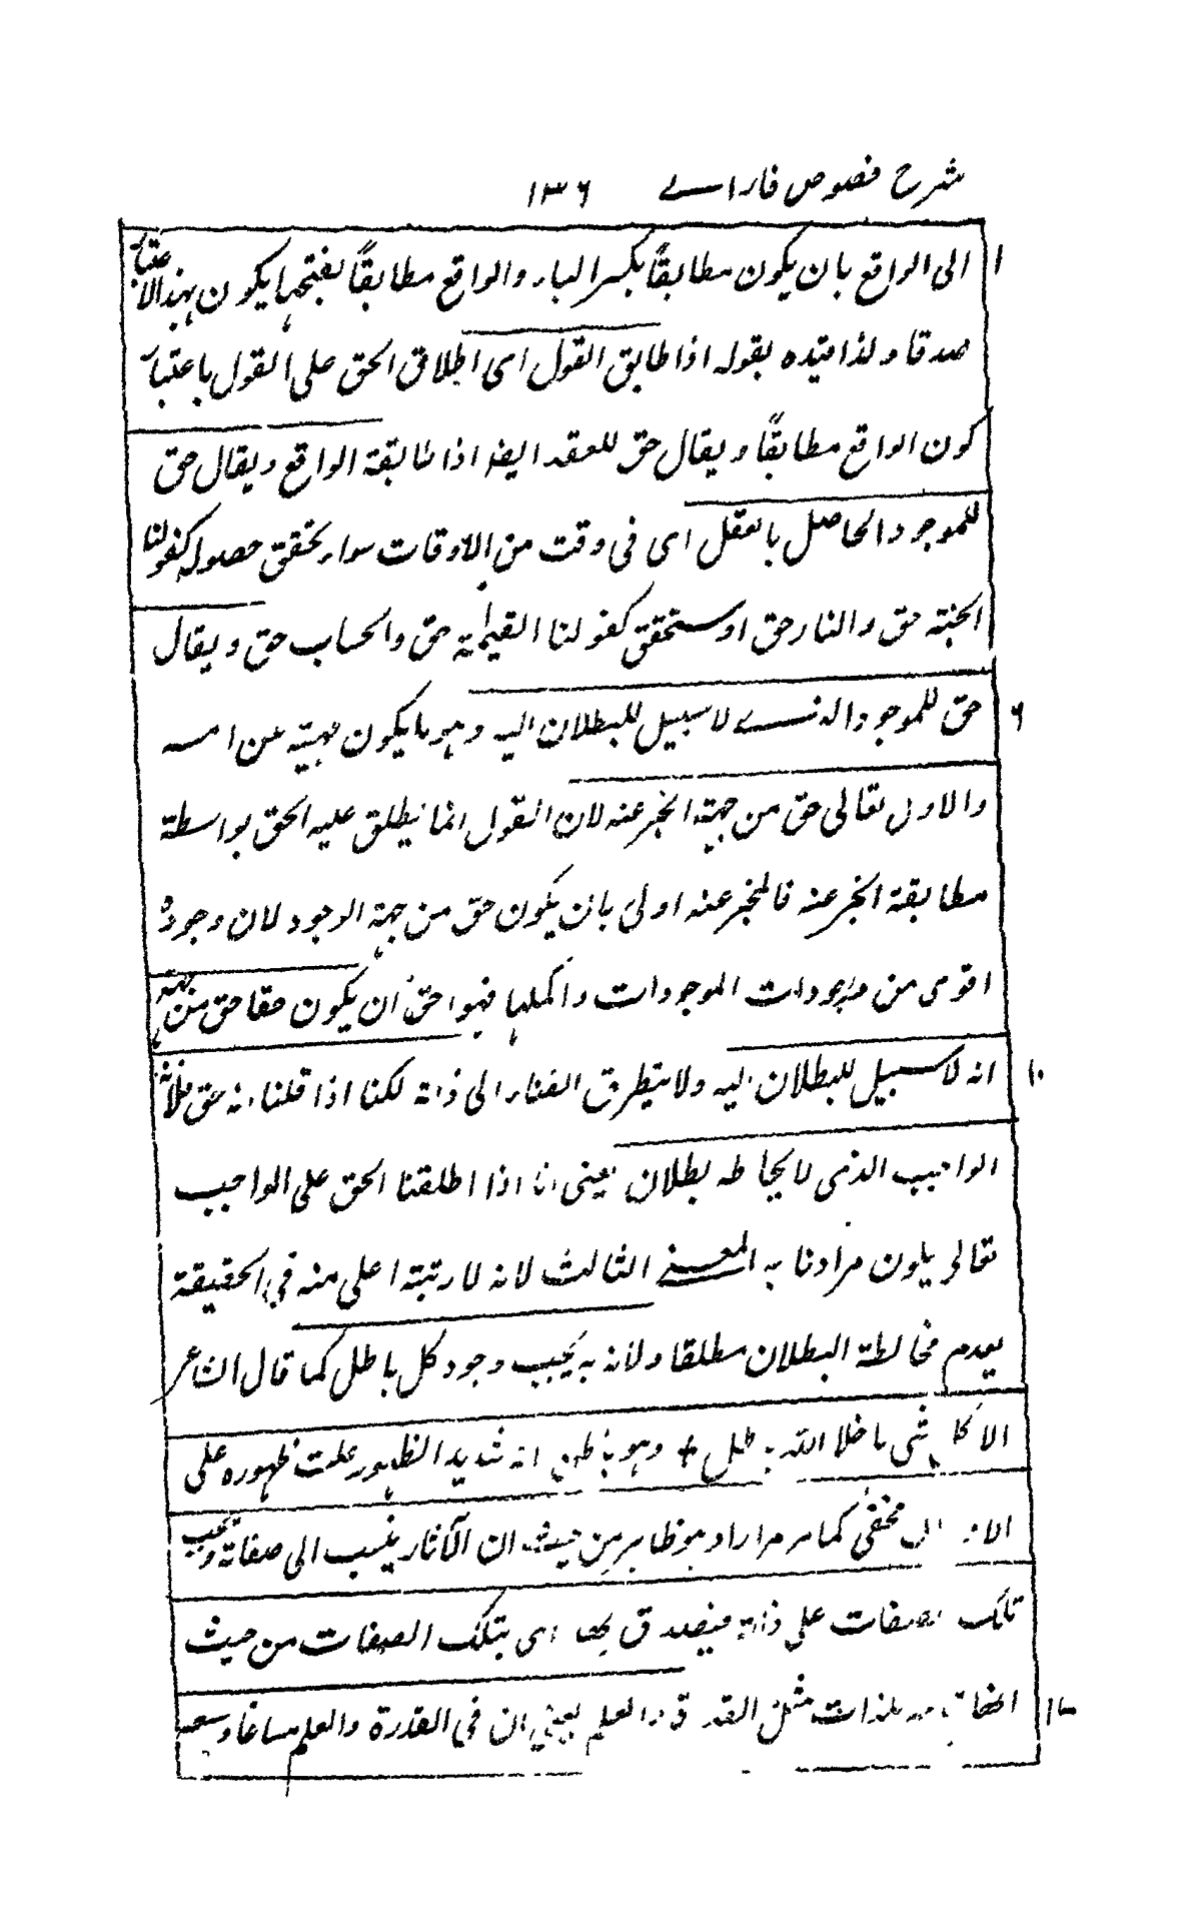 شرح فصوص فارابے ١٣٦
١ الى الواقع بان يكون مطابقاً بكسر الباء والواقع مطابقاً بفتحها يكون بهذا الاعتبار
صدقا ولذا قيده بقوله اذا طابق القول اى اطلاق الحق على القول باعتبار
كون الواقع مطابقاً ويقال حق للعقد ايضا اذا طابقة الواقع ويقال حق
للموجود الحاصل بالعقل اى فى وقت من الاوقات سواء تحقق حصوله كقولنا
الجنة حق والنار حق او سيتحقق كقولنا القيامة حق والحساب حق ويقال
٦ حق للموجود الذے لا سبيل للبطلان اليه وهو ما يكون
والاول تعالى حق من جهة المخبر عنه لان القول انما يطلق عليه الحق بواسطة
مطابقة المخبر عنه فالمخبر عنه اولى بان يكون حق من جهة الوجود لان وجوده
اقوى من وجودات الموجودات واكملها فهو احق ان يكون حقا حق من جهة
١٠ انه لا سبيل للبطلان اليه ولا يتطرق الفناء الى ذاته لكنا اذا قلنا انه حق فلانه
الواجب الذى لا يخالطه بطلان يعنى انا اذا اطلقنا الحق على الواجب
تعالى يكون مرادنا به المعنے الثالث لانه لا رتبة اعلى منه فى الحقيقة
بعدم مخالطة البطلان مطلقا ولانه به يجب وجود كل باطل كما قال الشاعر
الا كل شى ما خلا الله باطل + وهو باطن انه شديد الظهور غلبت ظهوره على
الا مخفى كما مر مرارا وهو ظاهر من حيث ان الآثار ينسب الى صفاته ويجب
تلك الصفات على ذاته فيصدق بها اى بتلك الصفات من حيث
مثل القدرة والعلم يعنى ان فى القدرة والعلم مساغا وسعة